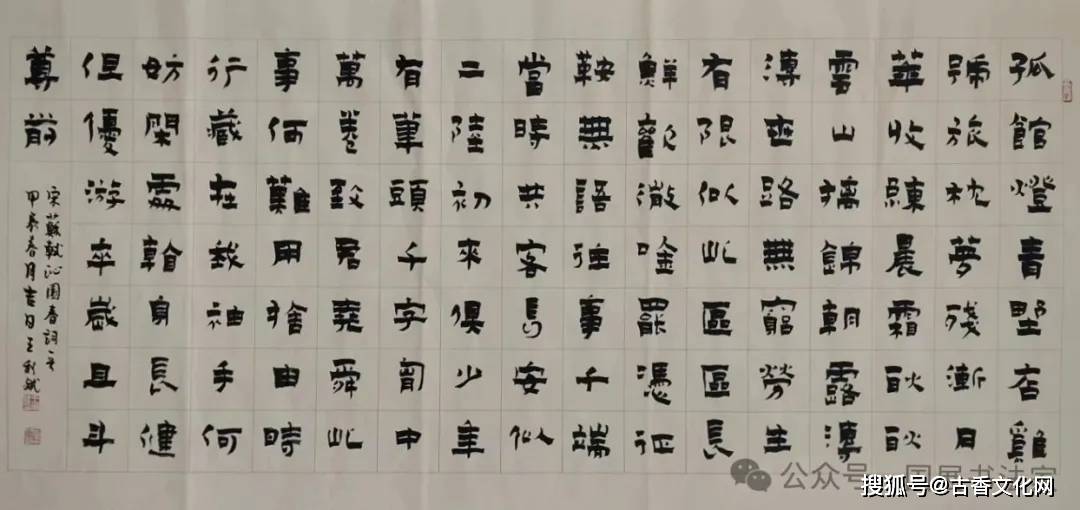 孤館燈青野店雞
號旅枕夢殘漸月
華收練晨霜耿耿
雲山摛錦朝露漙
漙世路無窮勞生
有限似此區區長
鮮歡微吟罷憑征
鞍無語往事千端
當時共客長安似
二陸初來俱少年
有筆頭千字胷中
萬卷致君堯舜此
事何難用捨由時
行藏在我袖手何
妨閑處看身長健
但優游卒歲且斗
尊前
宋蘇軾沁園春詞
甲辰春月吉日王利
公众号 国展书法家
搜狐号@古香文化网